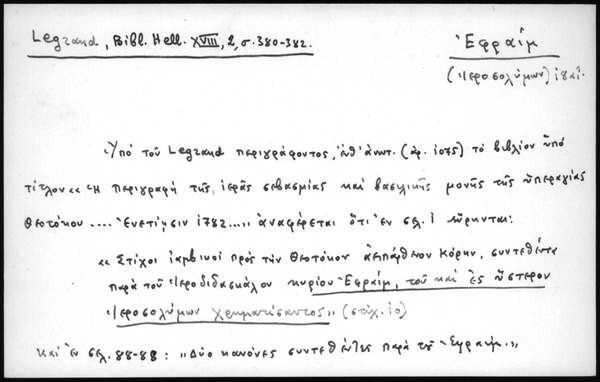 Legrand, Bibl. Hell. XVIII, 2, σ. 380-382.
Ἐφραὶμ
(Ἱεροσολύμων)
Ὑπὸ τοῦ Legrand περιγράφοντος, ἔνθ' ἀνωτ. (ἀρ. 1075) τὸ βιβλίον ὑπὸ
τίτλον «Ἡ περιγραφὴ τῆς ἱερᾶς σεβασμίας καὶ βασιλικῆς μονῆς τῆς ὑπεραγίας
Θεοτόκου .... Ἐνετίῃσιν 1782...» ἀναφέρεται ὅτι ἐν σελ. 1 εὕρηνται:
«Στίχοι ἰαμβικοὶ πρὸς τὴν Θεοτόκον ἀειπάρθενον Κόρην, συντεθέντες
παρὰ τοῦ Ἱεροδιδασκάλου κυρίου Ἐφραὶμ, τοῦ καὶ ἐς ὕστερον
Ἱεροσολύμων χρηματίσαντος» (στίχ. 10)
καὶ ἐν σελ. 88-88: «Δύο κανόνες συντεθέντες παρὰ τοῦ Ἐφραὶμ.»